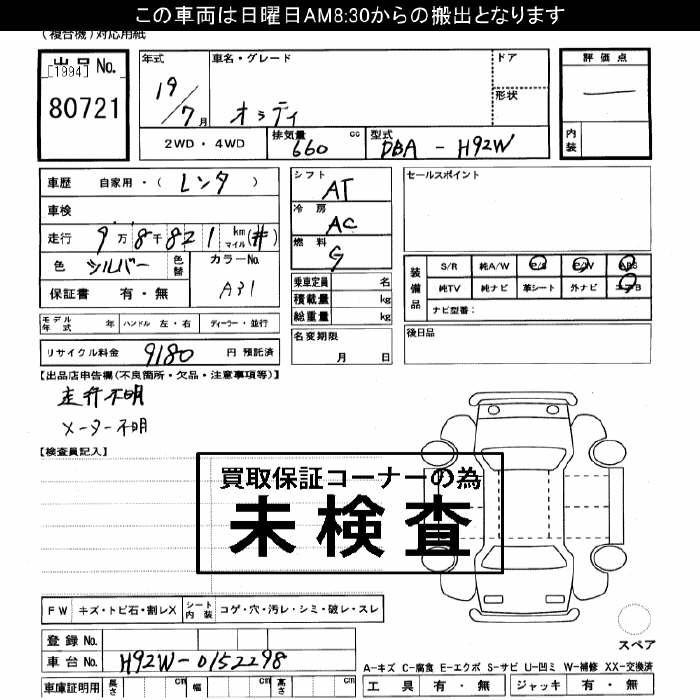 この車両は日曜日AM8:30からの搬出となります
(複合機)対応用紙
出品No.
[1994]
80721
年式 19/7月
車名・グレード オッティ
ドア
形状
評価点
内装
2WD・4WD 排気量 660 cc 型式 DBA-H92W
車歴 自家用・(レンタ)
車検
走行 9万8千821 km マイル (#)
色 シルバー 色替 カラーNo. A31
保証書 有・無
シフト AT
冷房 AC
燃料 G
乗車定員 名
積載量 kg
総重量 kg
セールスポイント
装備品 S/R 純A/W P/S P/W ABS
純TV 純ナビ 革シート 外ナビ エアB
ナビ型番:
モデル年式 年 ハンドル 左・右 ディーラー・並行
名変期限 月 日
後日品
リサイクル料金 9180 円 預託済
【出品店申告欄(不良箇所・欠品・注意事項等)】
走行不明
メーター不明
【検査員記入】
買取保証コーナーの為
未検査
FW キズ・トビ石・割レX シート内装 コゲ・穴・汚レ・シミ・破レ・スレ
スペア
登録No.
車台No. H92W-0152298
A-キズ C-腐食 E-エクボ S-サビ U-凹ミ W-補修 XX-交換済
車庫証明用 長さ cm 幅 cm 高さ cm
工具 有・無 ジャッキ 有・無